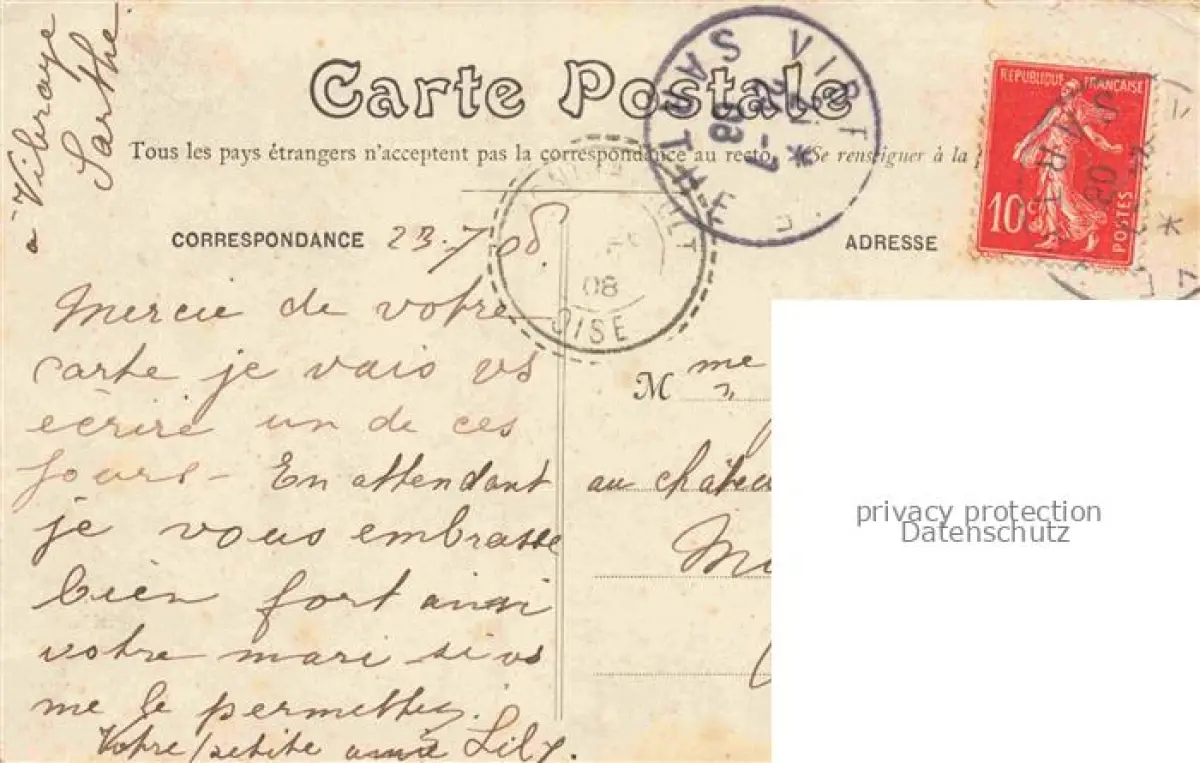 à Vibraye
Sarthe.
Carte Postale
Tous les pays étrangers n'acceptent pas la correspondance au recto. (Se renseigner à la
CORRESPONDANCE 23-7-08.
ADRESSE
RÉPUBLIQUE FRANÇAISE
10c
POSTES
SARTHE
22-7
08
08
OISE
Mercie de votre
carte je vais vs
écrire un de ces
jours - En attendant
je vous embrasse
bien fort ainsi
votre mari si vs
me le permettez.
Votre petite amie Lily.
M me
au châtea
privacy protection
Datenschutz